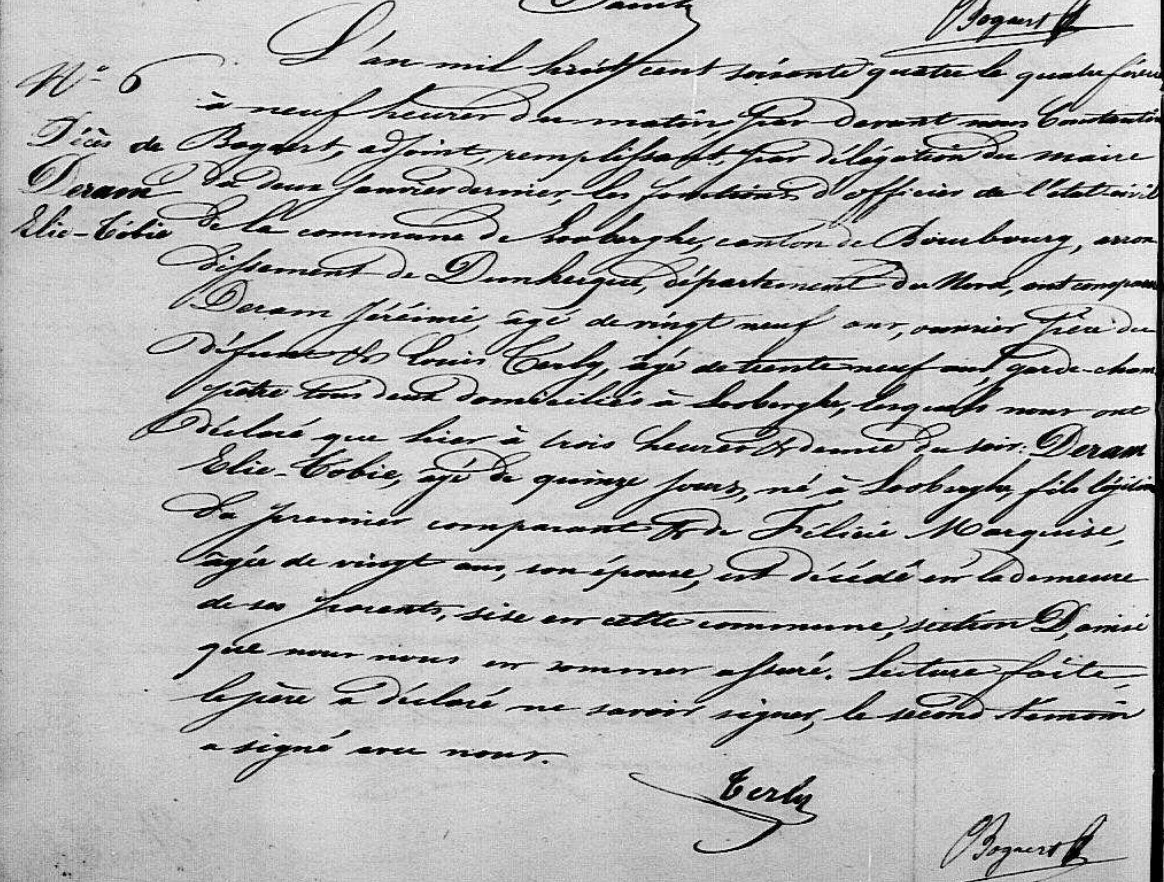 Bogaert
L'an mil huit cent soixante quatre le quatre févrie
N° 6
à neuf heures du matin, par devant nous Constantin
Décès de
Bogaert, adjoint, remplissant, par délégation du maire
Deram
du deux janvier dernier, les fonctions d'officier de l'état civil
Elie-Tobie
de la commune de Looberghe, canton de Bourbourg, arron
dissement de Dunkerque, département du Nord, ont comparu
Deram Jérémie, âgé de vingt neuf ans, ouvrier père du
défunt & Louis Terly, âgé de trente neuf ans, garde-cham
pêtre tous deux domiciliés à Looberghe, lesquels nous ont
déclaré que hier à trois heures & demie du soir. Deram
Elie-Tobie, âgé de quinze jours, né à Looberghe, fils légitime
du premier comparant & de Félicie Marquise,
âgée de vingt ans, son épouse, est décédé en la demeure
de ses parents, sise en cette commune, section D, ainsi
que nous nous en sommes assuré. Lecture faite,
le père a déclaré ne savoir signer, le second témoin
a signé avec nous.
Terly
Bogaert